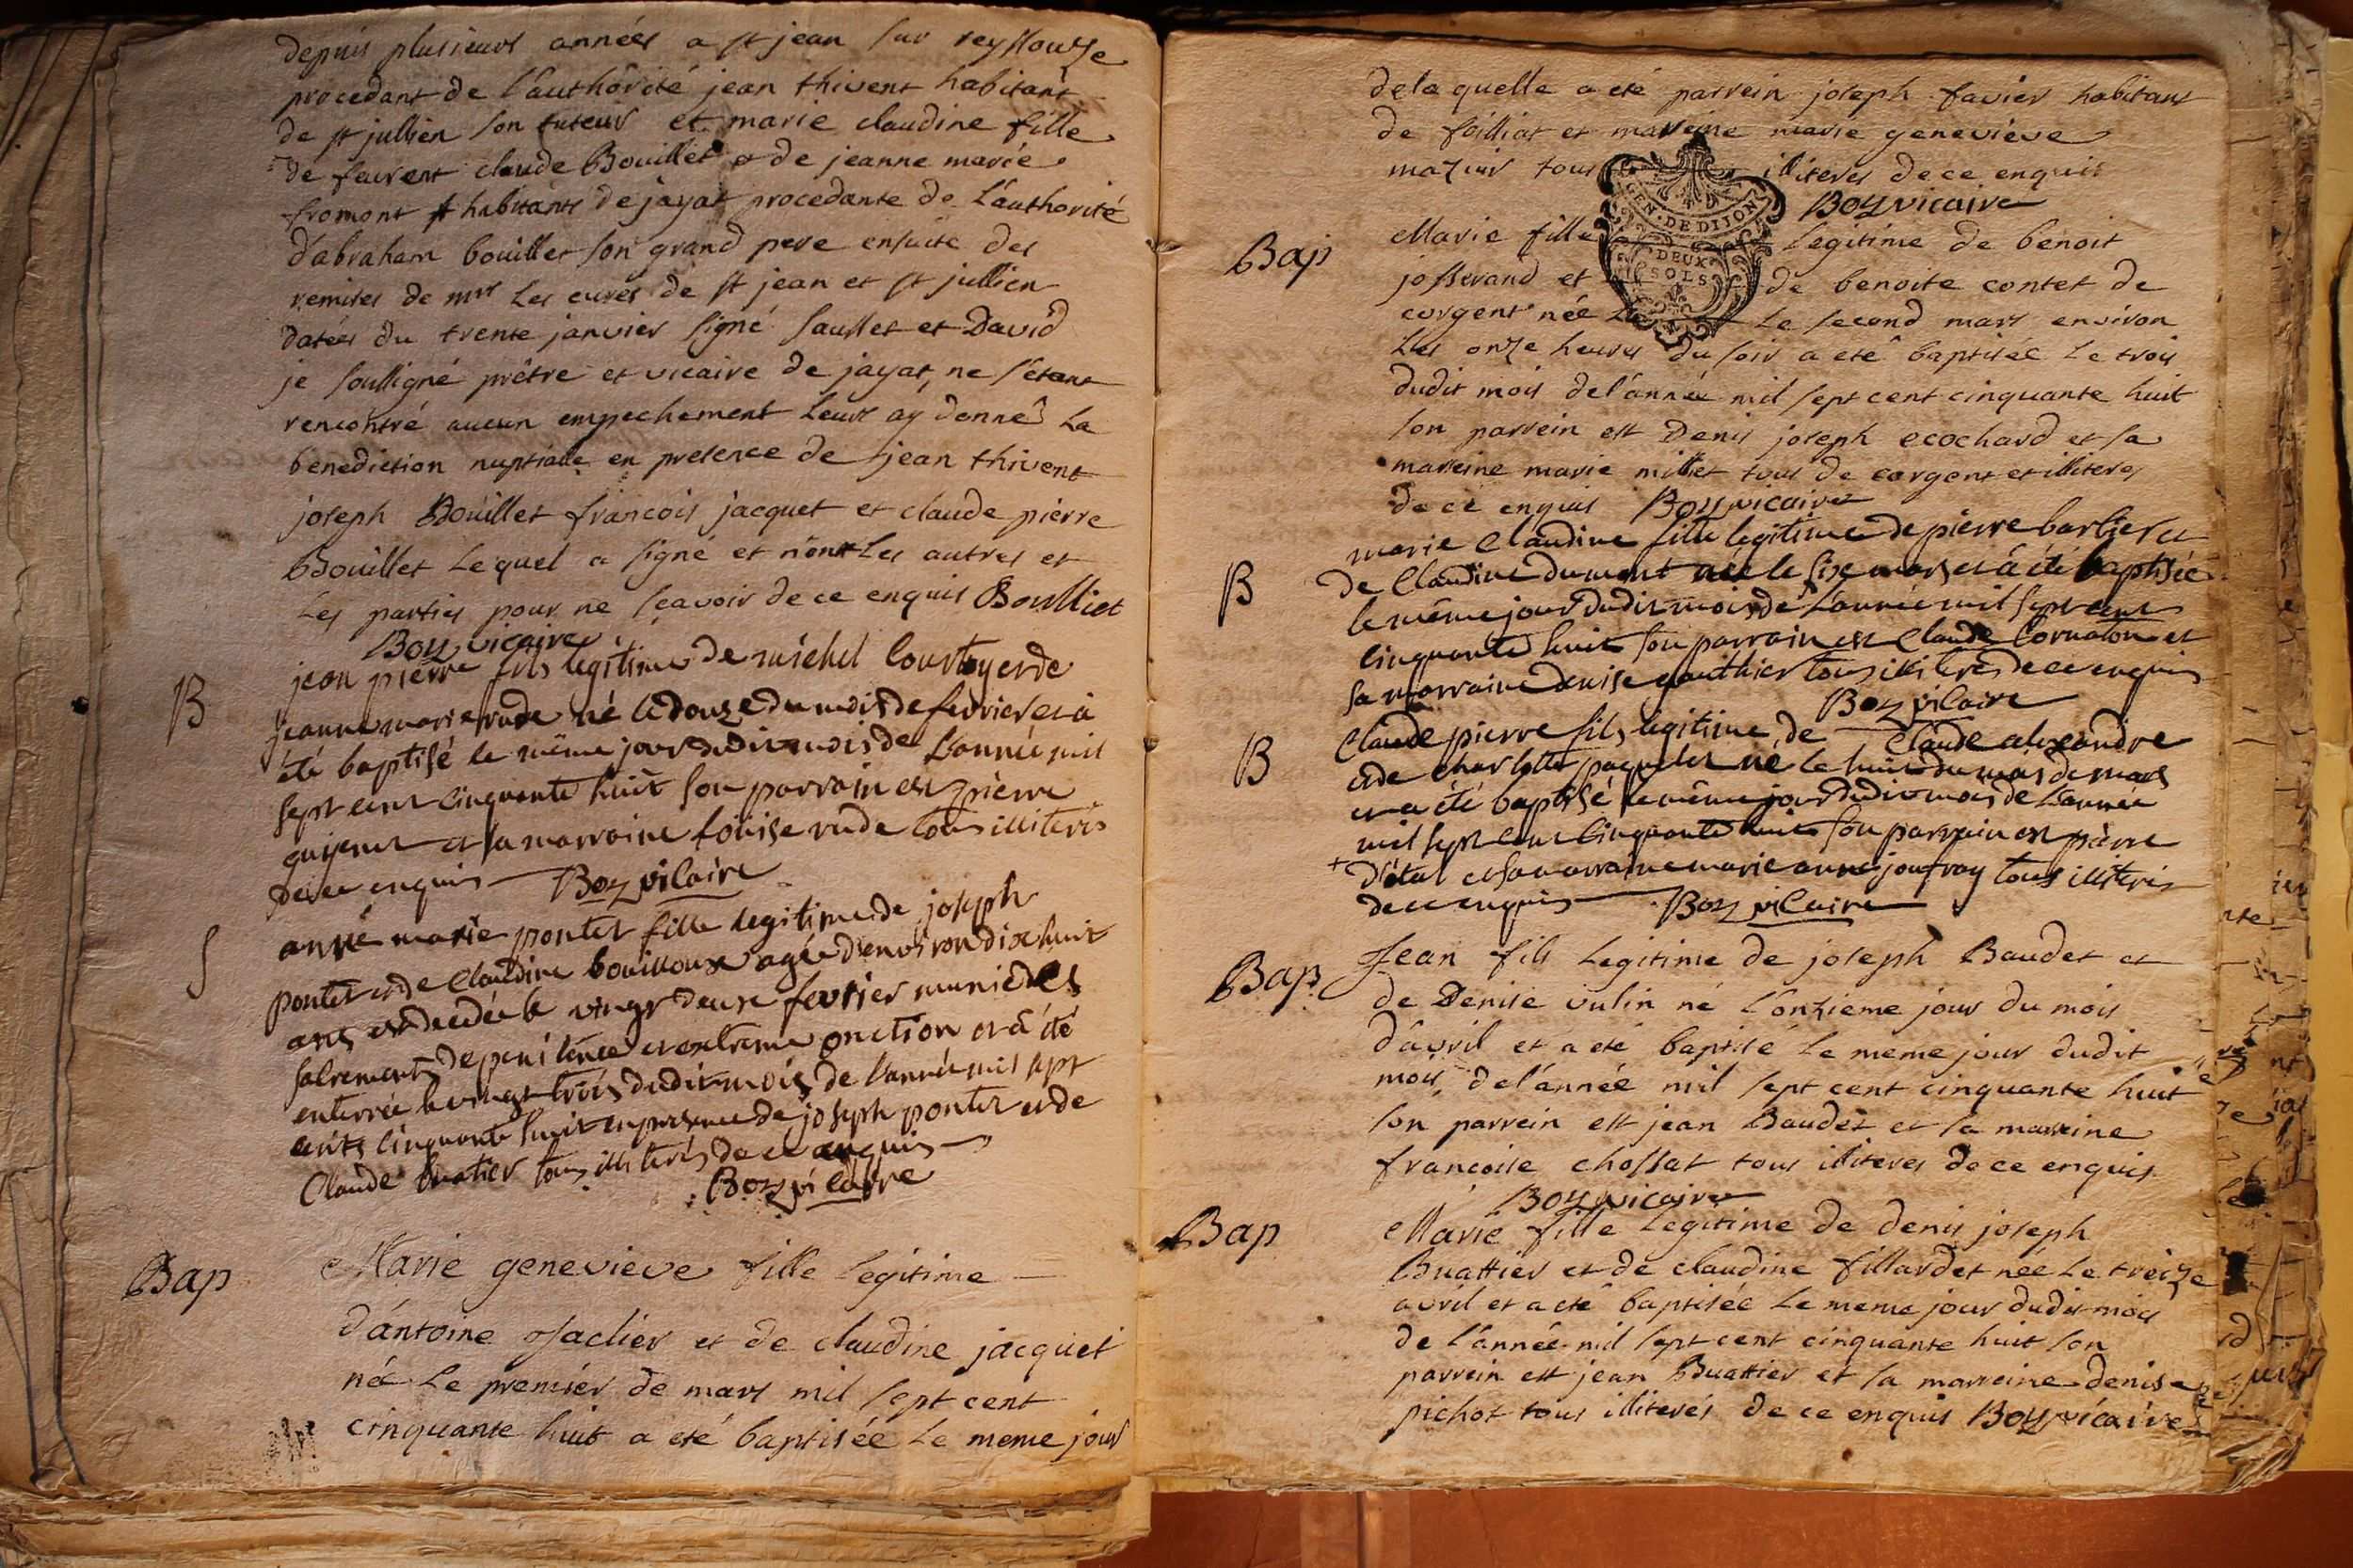 depuis plusieurs années a st jean sur reyssouze
procedant de l'authôrité jean thivent habitant
de st jullien son tuteur et marie claudine fille
de laurent claude Bouillet et de jeanne marie
fromont habitants de jayat procedante de l'authorité
d'abraham bouillet son grand pere ensuite des
remises de mrs les curés de st jean et st jullien
datées du trente janvier signé saullet et David
je soussigné prêtre et vicaire de jayat, ne s'étant
rencontré aucun empechement leurs ay donné la
benediction nuptialle en presence de jean thivent
joseph Bouillet francois jacquet et claude pierre
Bouillet lequel a signé et non les autres et
les parties pour ne sçavoir de ce enquis Boulliet
Boy vicaire
B
jean pierre fils legitime de michel Courtoy et de
jeanne marie rude né le douze du mois de fevrier et à
été baptisé le même jour dudit mois de L'année mil
sept cent cinquante huit son parrain est pierre
et sa marraine loüise rude tous illiteris
de ce enquis Boy vicaire
S
anne marie pontet fille legitime de joseph
pontet et de Claudine bouilloux agée d'environ dix huit
ans est decedée le vingt deux fevrier munie des
sacrements de penitence et extreme onction et a été
enterrée le vingt trois dudit mois de l'année mil sept
cents cinquante huit en presence de joseph pontet et de
Claude buatier tous illiterés de ce enquis
Boy vicaire
Bap
Marie genevieve fille legitime
d'antoine et de claudine jacquet
née le premier de mars mil sept cent
cinquante huit a eté baptisée le meme jour
de la quelle a eté parrein joseph favier habitant
de foilliat et marreine marie genevieve
mazuir tous illiteres de ce enquis
GEN·DE DIJON
DEUX
SOLS
Boy vicaire
Bap
Marie fille legitime de benoit
josserand et de benoite contet de
corgent née le second mars environ
les onze heures du soir a eté baptisée le trois
dudit mois de l'année mil sept cent cinquante huit
son parrein est Denis joseph ecochard et sa
marreine marie millet tous de corgent et illiteres
de ce enquis Boy vicaire
B
marie Claudine fille legitime de pierre barbier et
de Claudine dumont née le six mars et à été baptisée
le même jour dudit mois de L'année mil sept cent
cinquante huit son parrain est Claude Cornaton et
sa marraine denise gauthier tous illiterés de ce enquis
Boy vicaire
B
Claude pierre fils legitime de Claude alexandre
et de charlotte paquelet né le huit du mois de mars
et a été baptisé le même jour dudit mois de L'année
mil sept cent cinquante huit son parrain est pierre
+ d'étal et sa marraine marie anne joufray tous illiteris
de ce enquis Boy vicaire
Bap
Jean fils legitime de joseph Baudet et
de Denise vulin né l'onzieme jour du mois
d'avril et a eté baptisé le meme jour dudit
mois de l'année mil sept cent cinquante huit
son parrein est jean Baudet et sa marreine
francoise chossat tous illiteres de ce enquis
Boy vicaire
Bap
Marie fille legitime de denis joseph
Buattier et de claudine fillardet née le treize
avril et a eté baptisée le meme jour dudit mois
de l'année mil sept cent cinquante huit son
parrein est jean Buattier et sa marreine denise
pichot tous illiterés de ce enquis Boy vicaire